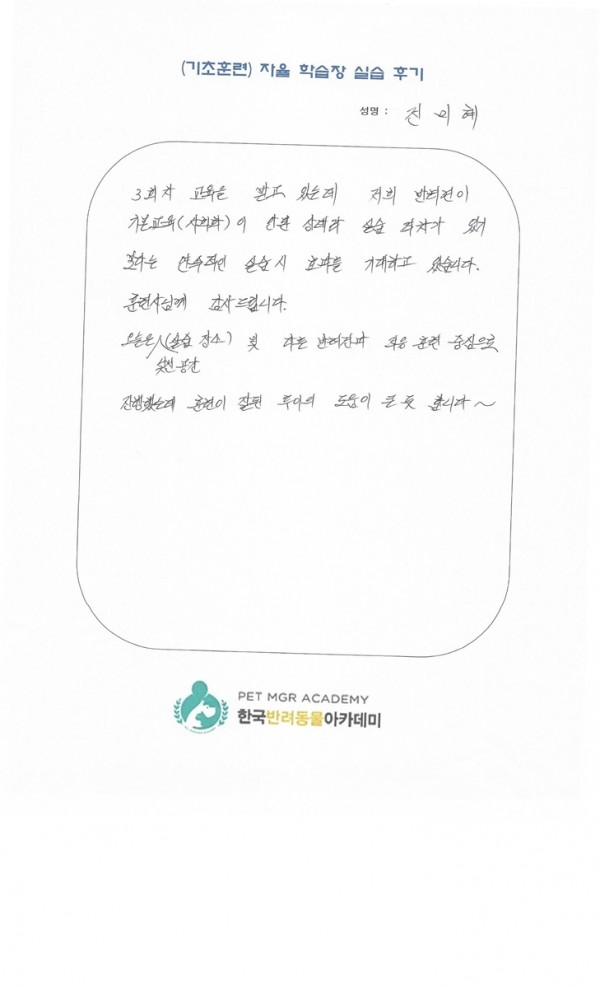 (기초훈련) 자율 학습장 실습 후기
성명 : 진미혜
3회차 교육을 받고 있는데 저희 반려견이
기본교육(사회화)이 안된 상태라 실습
는 연속적인 실습시 효과를 기대하고 있습니다.
훈련사님께 감사드립니다.
오늘은 낯선 공간 (실습 장소) 및 다른 반려견과 적응 훈련 중심으로
진행했는데 훈련이 잘된 도움이 큰 듯 합니다~
PET MGR ACADEMY
한국반려동물아카데미